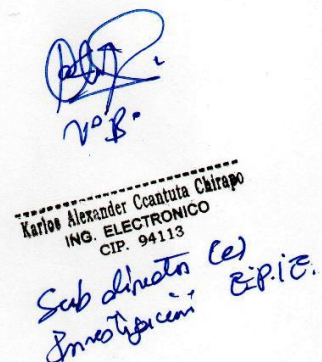 V° B°
Karlos Alexander Ccantuta Chirapo
ING. ELECTRONICO
CIP. 94113
Sub director (e)
Investigación E.P.I.E.